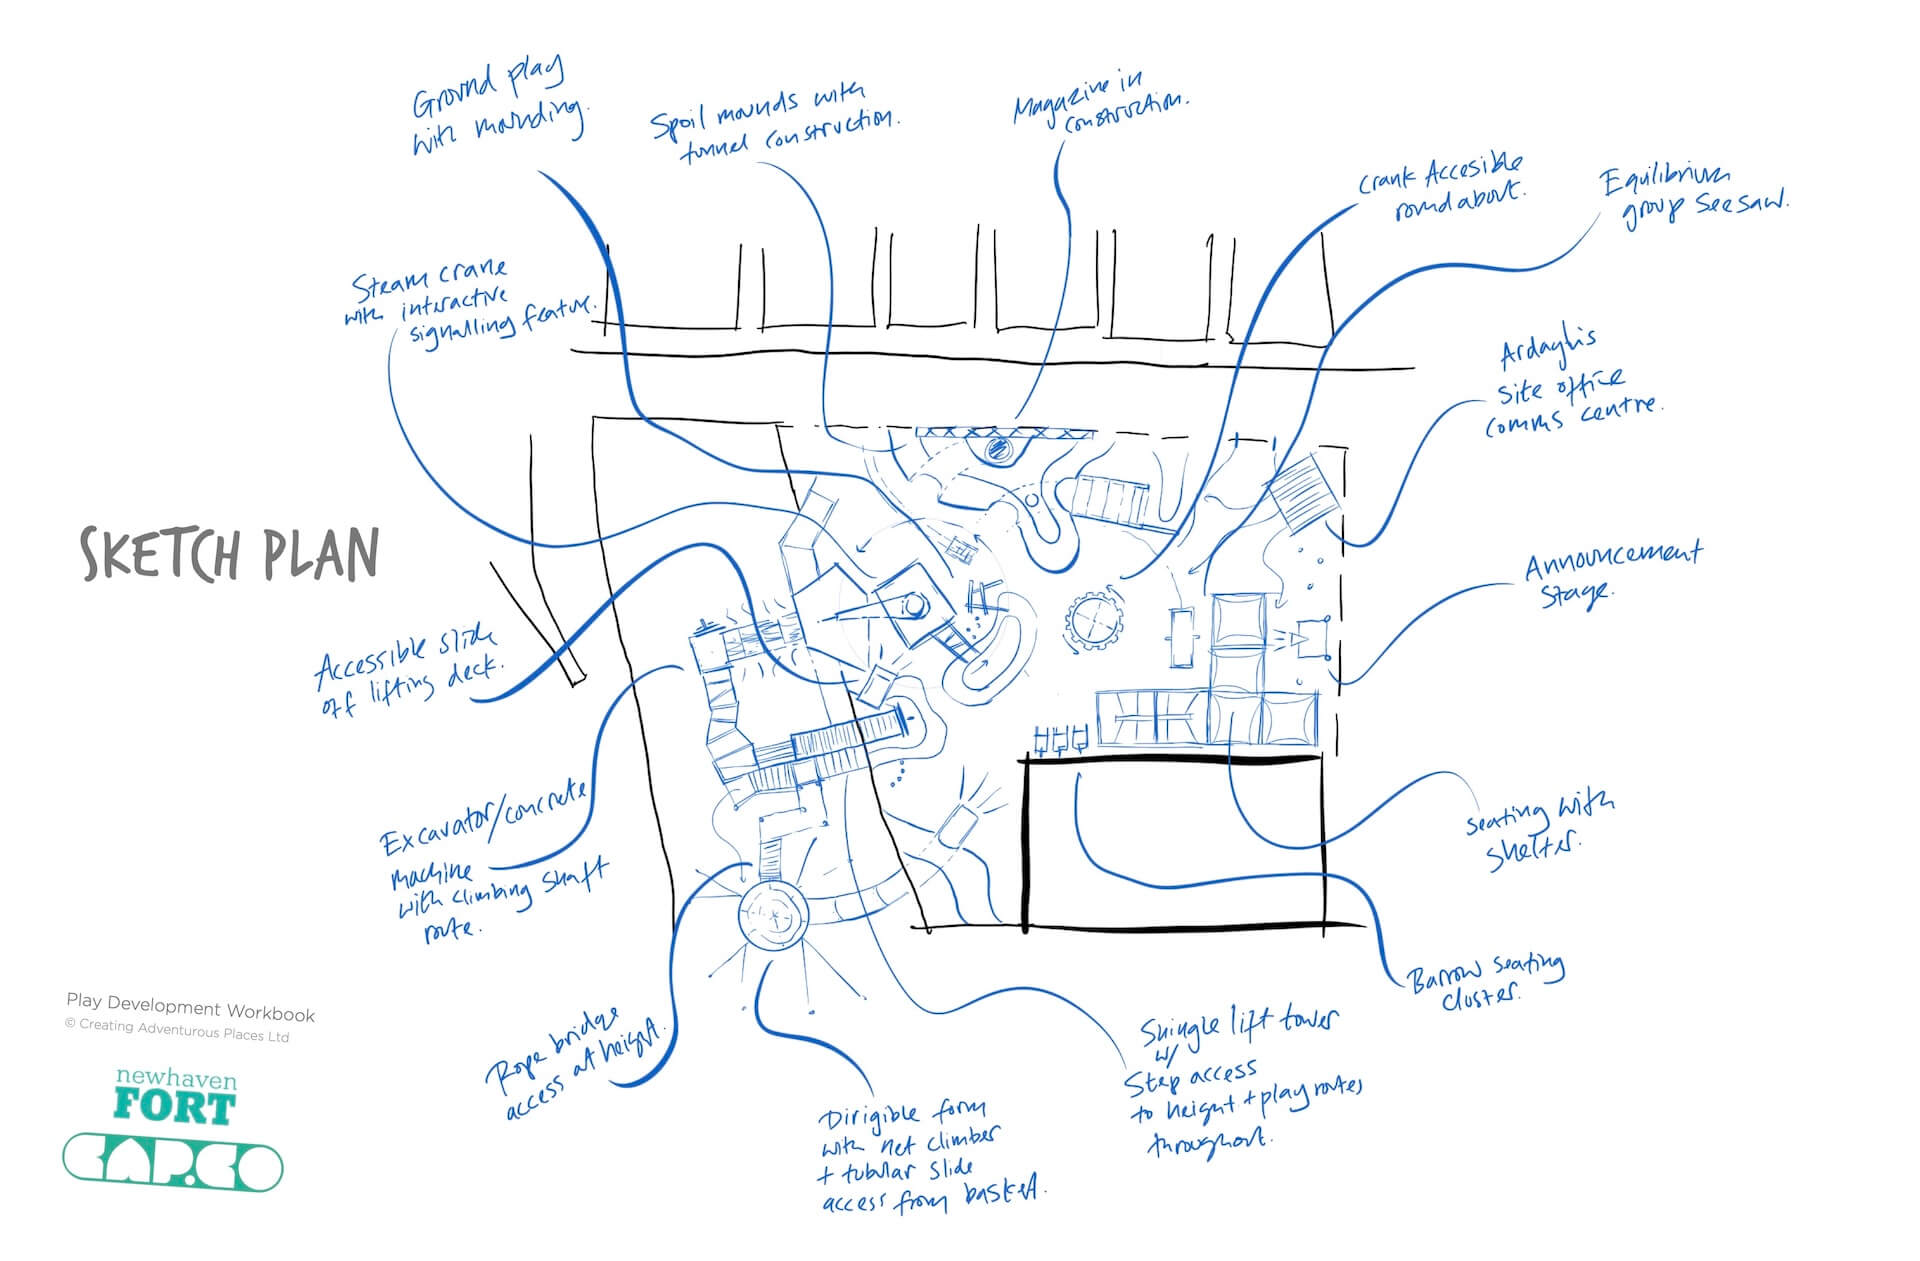 Ground play
with mounding.
Spoil mounds with
tunnel construction.
Magazine in
construction.
Crank Accesible
roundabout.
Equilibrium
group seesaw.
Steam crane
with interactive
signalling feature.
Ardagh's
site office
comms centre.
SKETCH PLAN
Announcement
stage.
Accessible slide
off lifting deck.
Excavator/concrete
machine
with climbing shaft
route.
Seating with
shelter.
Barrow seating
cluster.
Play Development Workbook
© Creating Adventurous Places Ltd
newhaven
FORT
CAP.CO
Rope bridge
access at height.
Shingle lift tower
w/
Step access
to height + play routes
throughout.
Dirigible form
with net climber
+ tubular slide
access from basket.